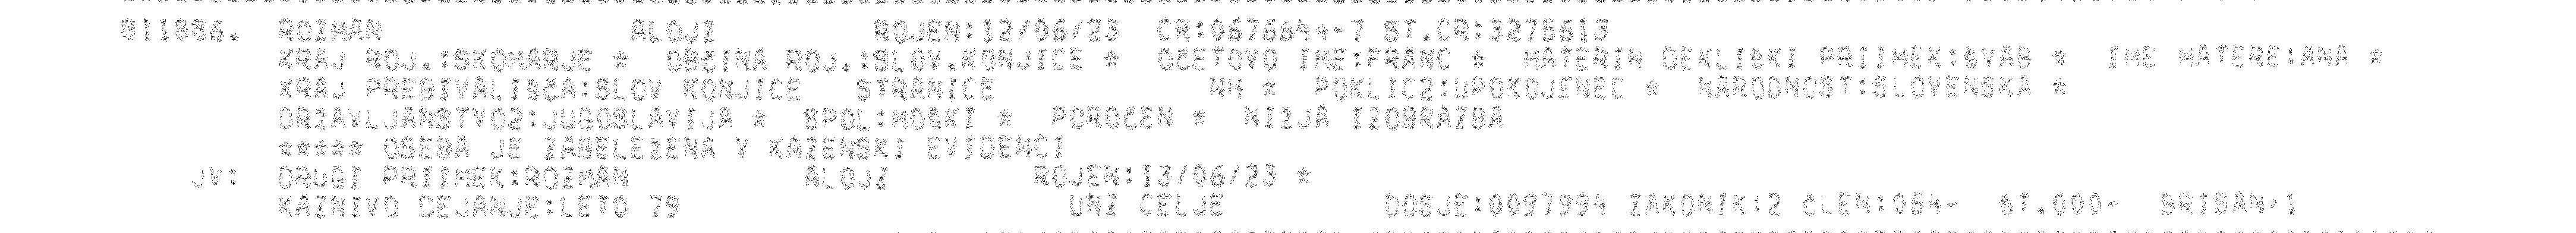 811886. ROZMAN ALOJZ ROJEN:12/06/23 CR:0676644-7 ST.CR:3275613
KRAJ ROJ.:SKOMARJE * OBČINA ROJ.:SLOV.KONJICE * OČETOVO IME:FRANC * MATERIN DEKLIŠKI PRIIMEK:ŠVAB * IME MATERE:ANA *
KRAJ PREBIVALIŠČA:SLOV KONJICE STRANICE NH * POKLIC2:UPOKOJENEC * NARODNOST:SLOVENSKA *
DRŽAVLJANSTVO2:JUGOSLAVIJA * SPOL:MOŠKI * POROČEN * NIŽJA IZOBRAZBA
***** OSEBA JE ZABELEŽENA V KAZENSKI EVIDENCI
JV: DRUGI PRIIMEK:ROZMAN ALOJZ ROJEN:13/06/23 *
KAZNIVO DEJANJE:LETO 79 UNZ CELJE DOSJE:0097994 ZAKONIK:2 ČLEN:054- ST.000- BRISAN:1